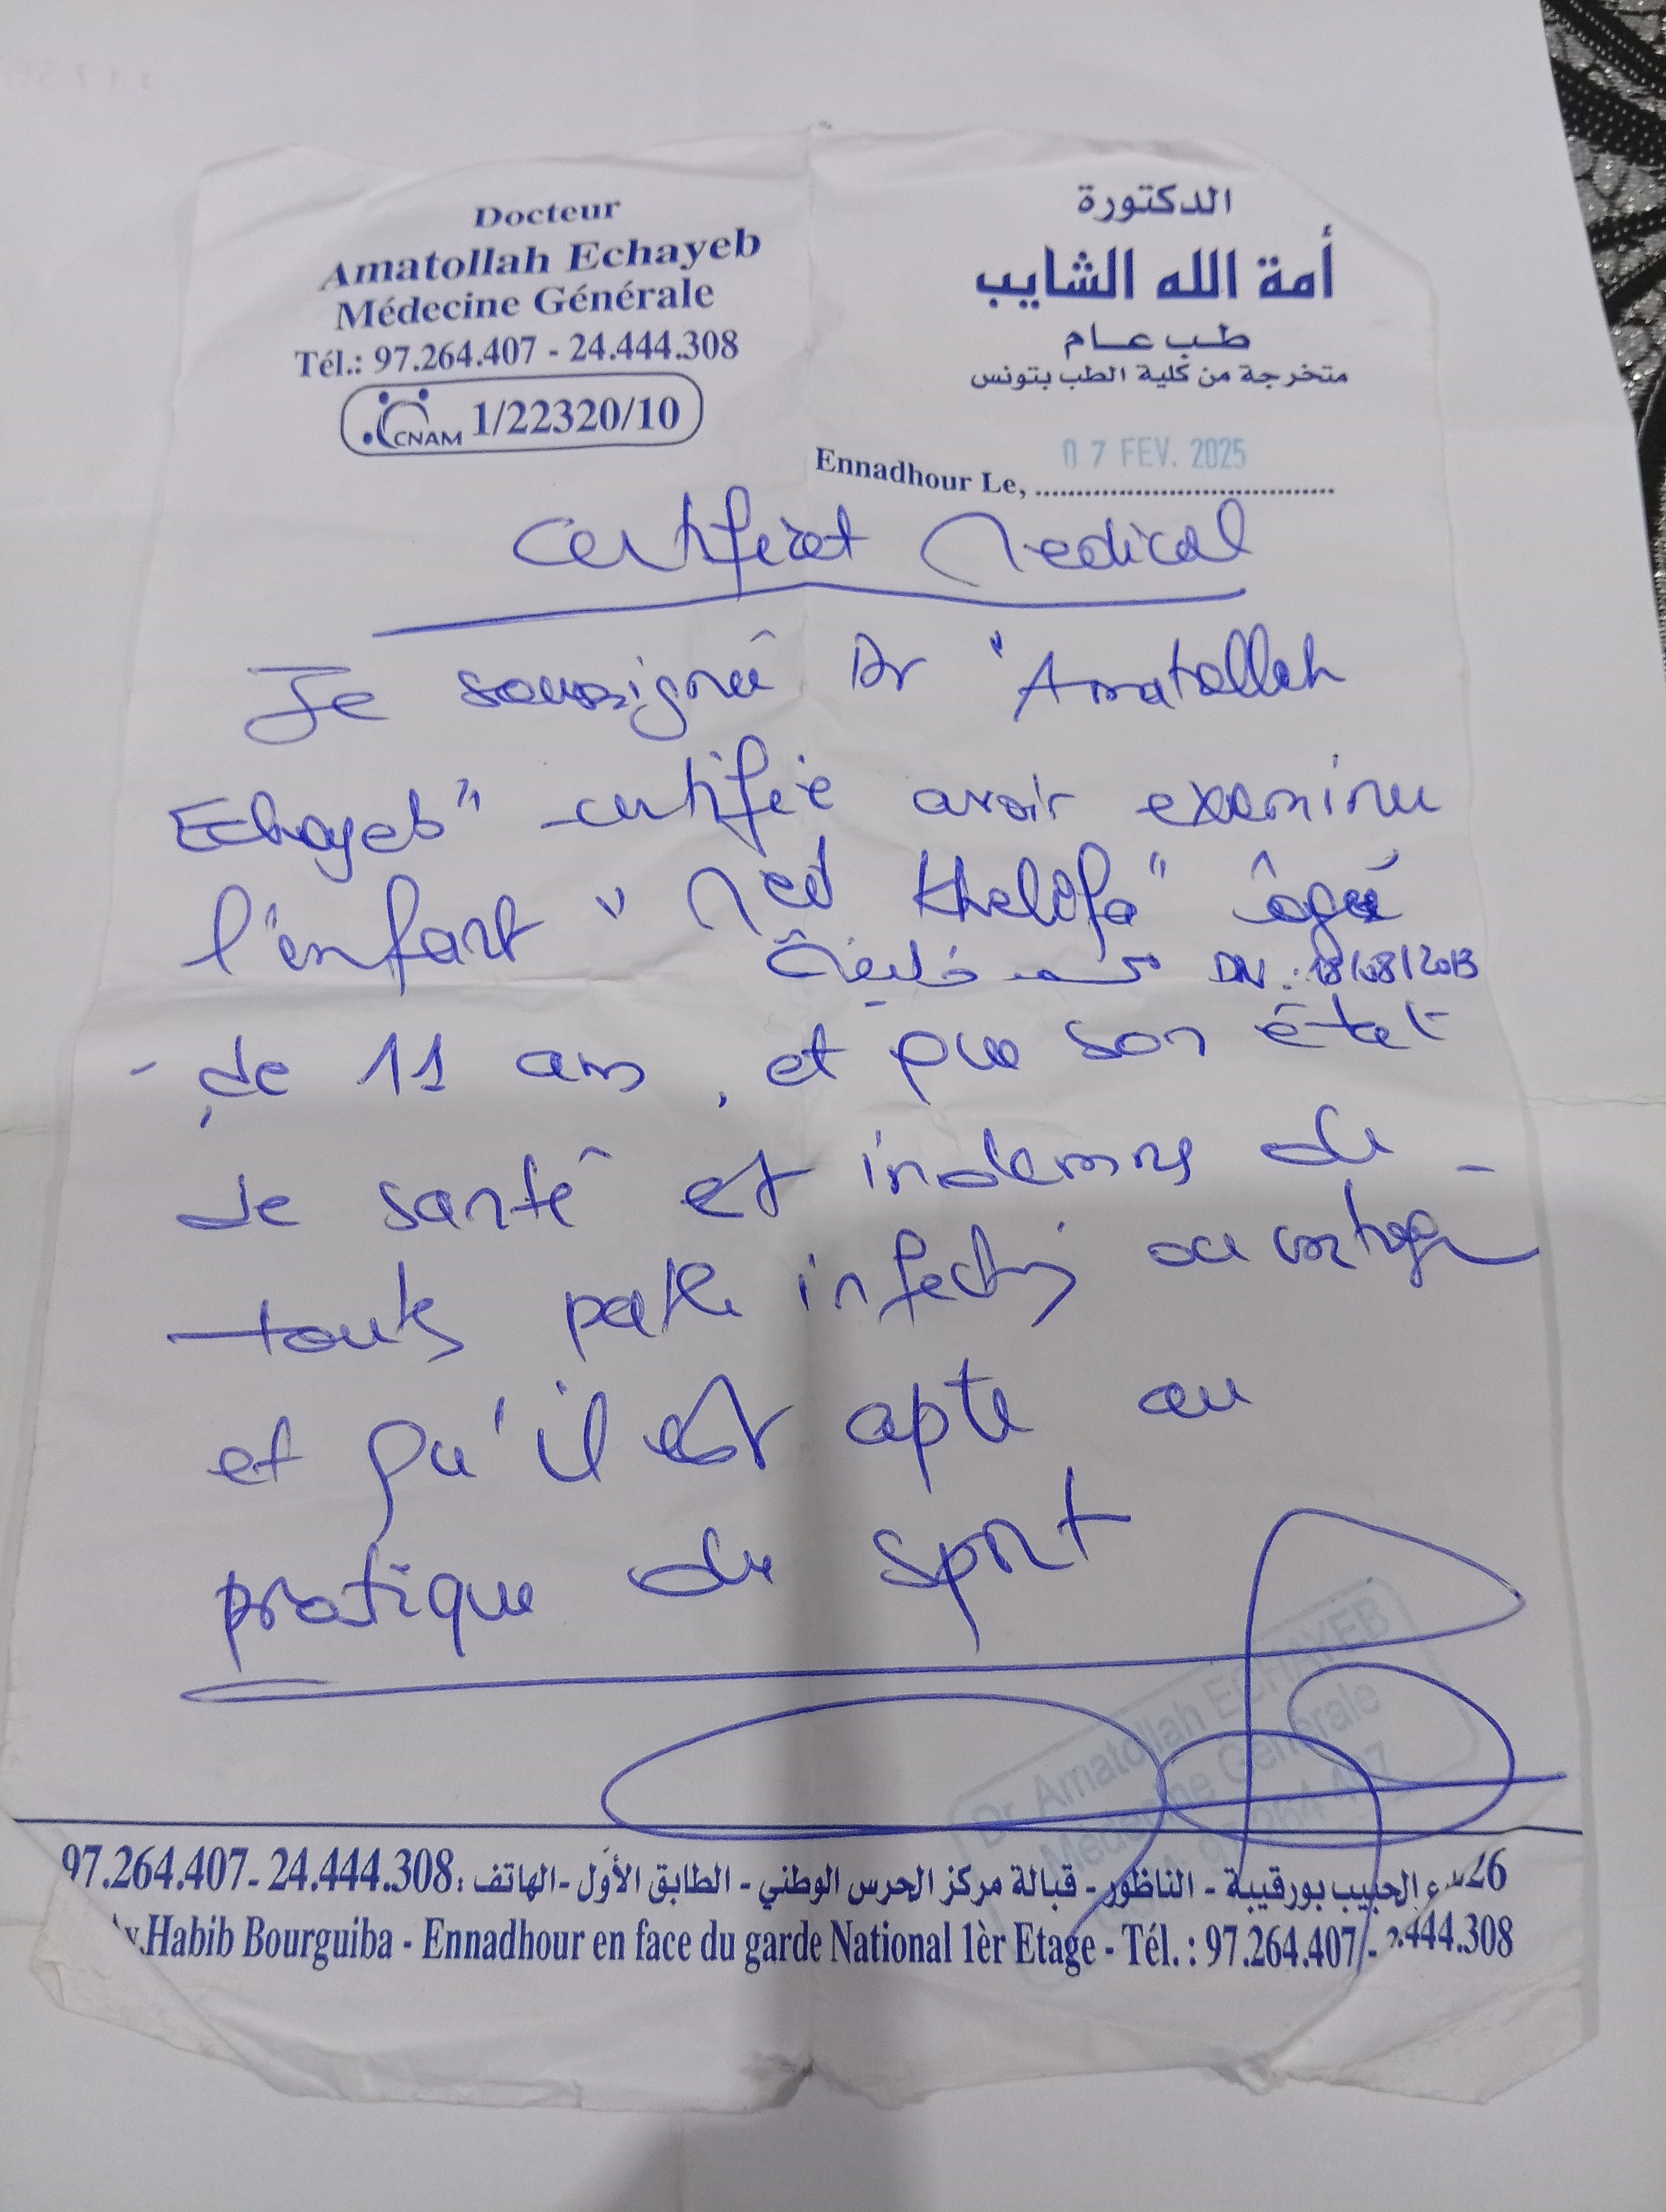 Docteur
Amatollah Echayeb
Médecine Générale
Tél.: 97.264.407 - 24.444.308
CNAM 1/22320/10
الدكتورة
أمة الله الشايب
طب عام
متخرجة من كلية الطب بتونس
Ennadhour Le, 07 FEV. 2025
Certificat Medical
Je soussigné Dr "Amatollah
Echayeb" certifie avoir examiner
l'enfant " Med Khelifa" âgé
محمد خليفة DN: 18/08/2013
de 11 ans, et que son état
de santé est indemns de
touts path infectus ou contag
et qu'il est apte au
pratique du sport
Dr Amatollah ECHAYEB
Médecine Générale
97 264 407
الحبيب بورقيبة - الناظور - قبالة مركز الحرس الوطني - الطابق الأول - الهاتف : 97.264.407 - 24.444.308
Av.Habib Bourguiba - Ennadhour en face du garde National 1èr Etage - Tél. : 97.264.407/- 24.444.308